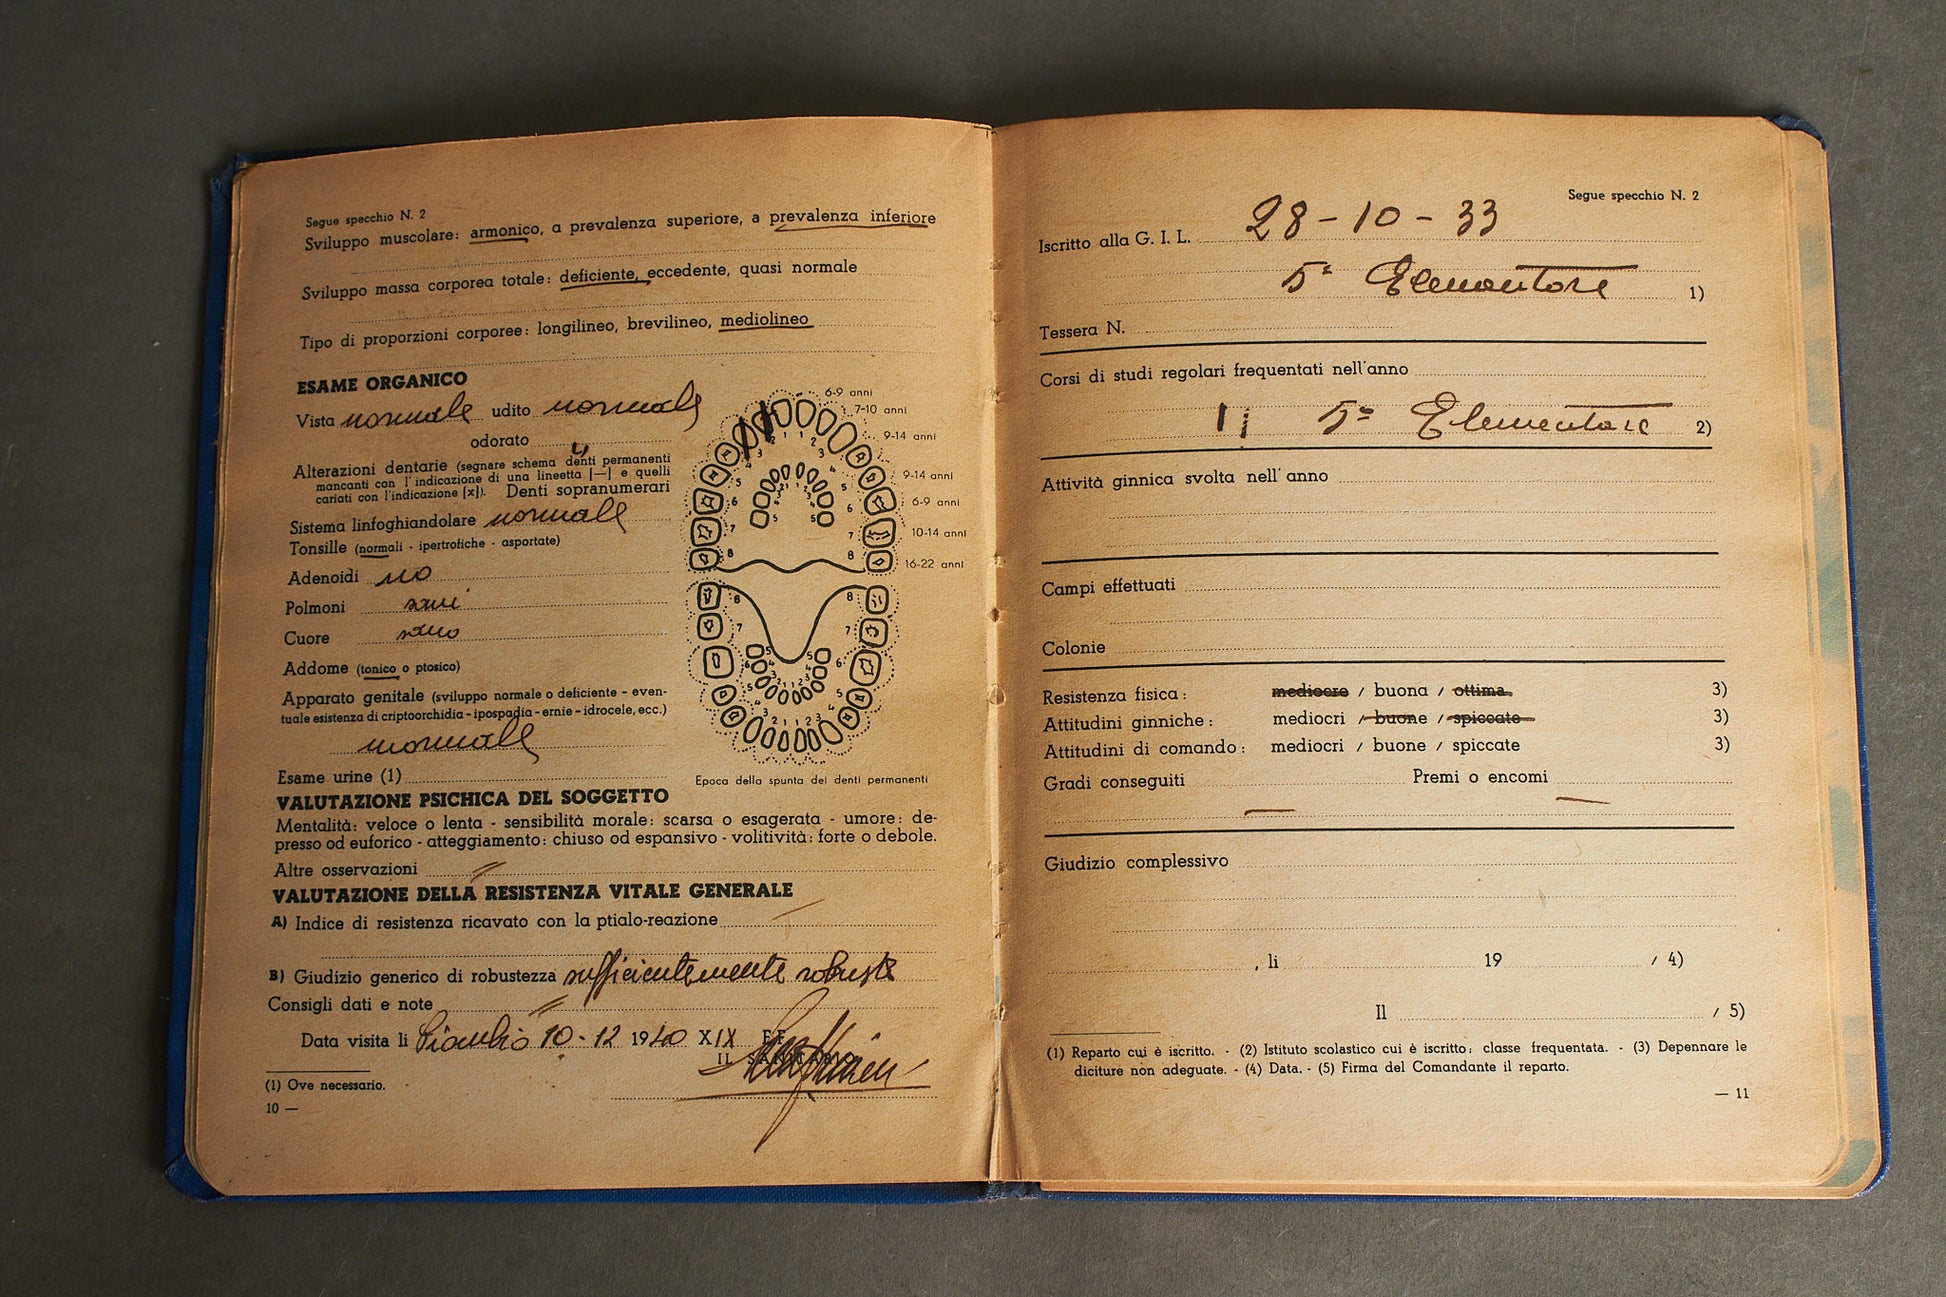 Segue specchio N. 2
Sviluppo muscolare: armonico, a prevalenza superiore, a prevalenza inferiore
Sviluppo massa corporea totale: deficiente, eccedente, quasi normale
Tipo di proporzioni corporee: longilineo, brevilineo, mediolineo
ESAME ORGANICO
Vista normale udito normale
odorato
Alterazioni dentarie (segnare schema denti permanenti
mancanti con l'indicazione di una lineetta |—| e quelli
cariati con l'indicazione |x|). Denti sopranumerari
Sistema linfoghiandolare normale
Tonsille (normali - ipertrofiche - asportate)
Adenoidi no
Polmoni sani
Cuore sano
Addome (tonico o ptosico)
Apparato genitale (sviluppo normale o deficiente - even-
tuale esistenza di criptoorchidia - ipospadia - ernie - idrocele, ecc.)
normale
Esame urine (1)
6-9 anni
7-10 anni
9-14 anni
9-14 anni
6-9 anni
10-14 anni
16-22 anni
Epoca della spunta dei denti permanenti
VALUTAZIONE PSICHICA DEL SOGGETTO
Mentalità: veloce o lenta - sensibilità morale: scarsa o esagerata - umore: de-
presso od euforico - atteggiamento: chiuso od espansivo - volitività: forte o debole.
Altre osservazioni
VALUTAZIONE DELLA RESISTENZA VITALE GENERALE
A) Indice di resistenza ricavato con la ptialo-reazione
B) Giudizio generico di robustezza sufficientemente robusto
Consigli dati e note
Data visita li 10-12 1940 XIX E.F.
IL SANITARIO
(1) Ove necessario.
10 —
Segue specchio N. 2
Iscritto alla G. I. L. 28-10-33
5ª Elementare 1)
Tessera N.
Corsi di studi regolari frequentati nell'anno
5ª Elementare 2)
Attività ginnica svolta nell'anno
Campi effettuati
Colonie
Resistenza fisica: mediocre / buona / ottima. 3)
Attitudini ginniche: mediocri / buone / spiccate 3)
Attitudini di comando: mediocri / buone / spiccate 3)
Gradi conseguiti Premi o encomi
Giudizio complessivo
, li 19 / 4)
Il / 5)
(1) Reparto cui è iscritto. - (2) Istituto scolastico cui è iscritto; classe frequentata. - (3) Depennare le
diciture non adeguate. - (4) Data. - (5) Firma del Comandante il reparto.
— 11